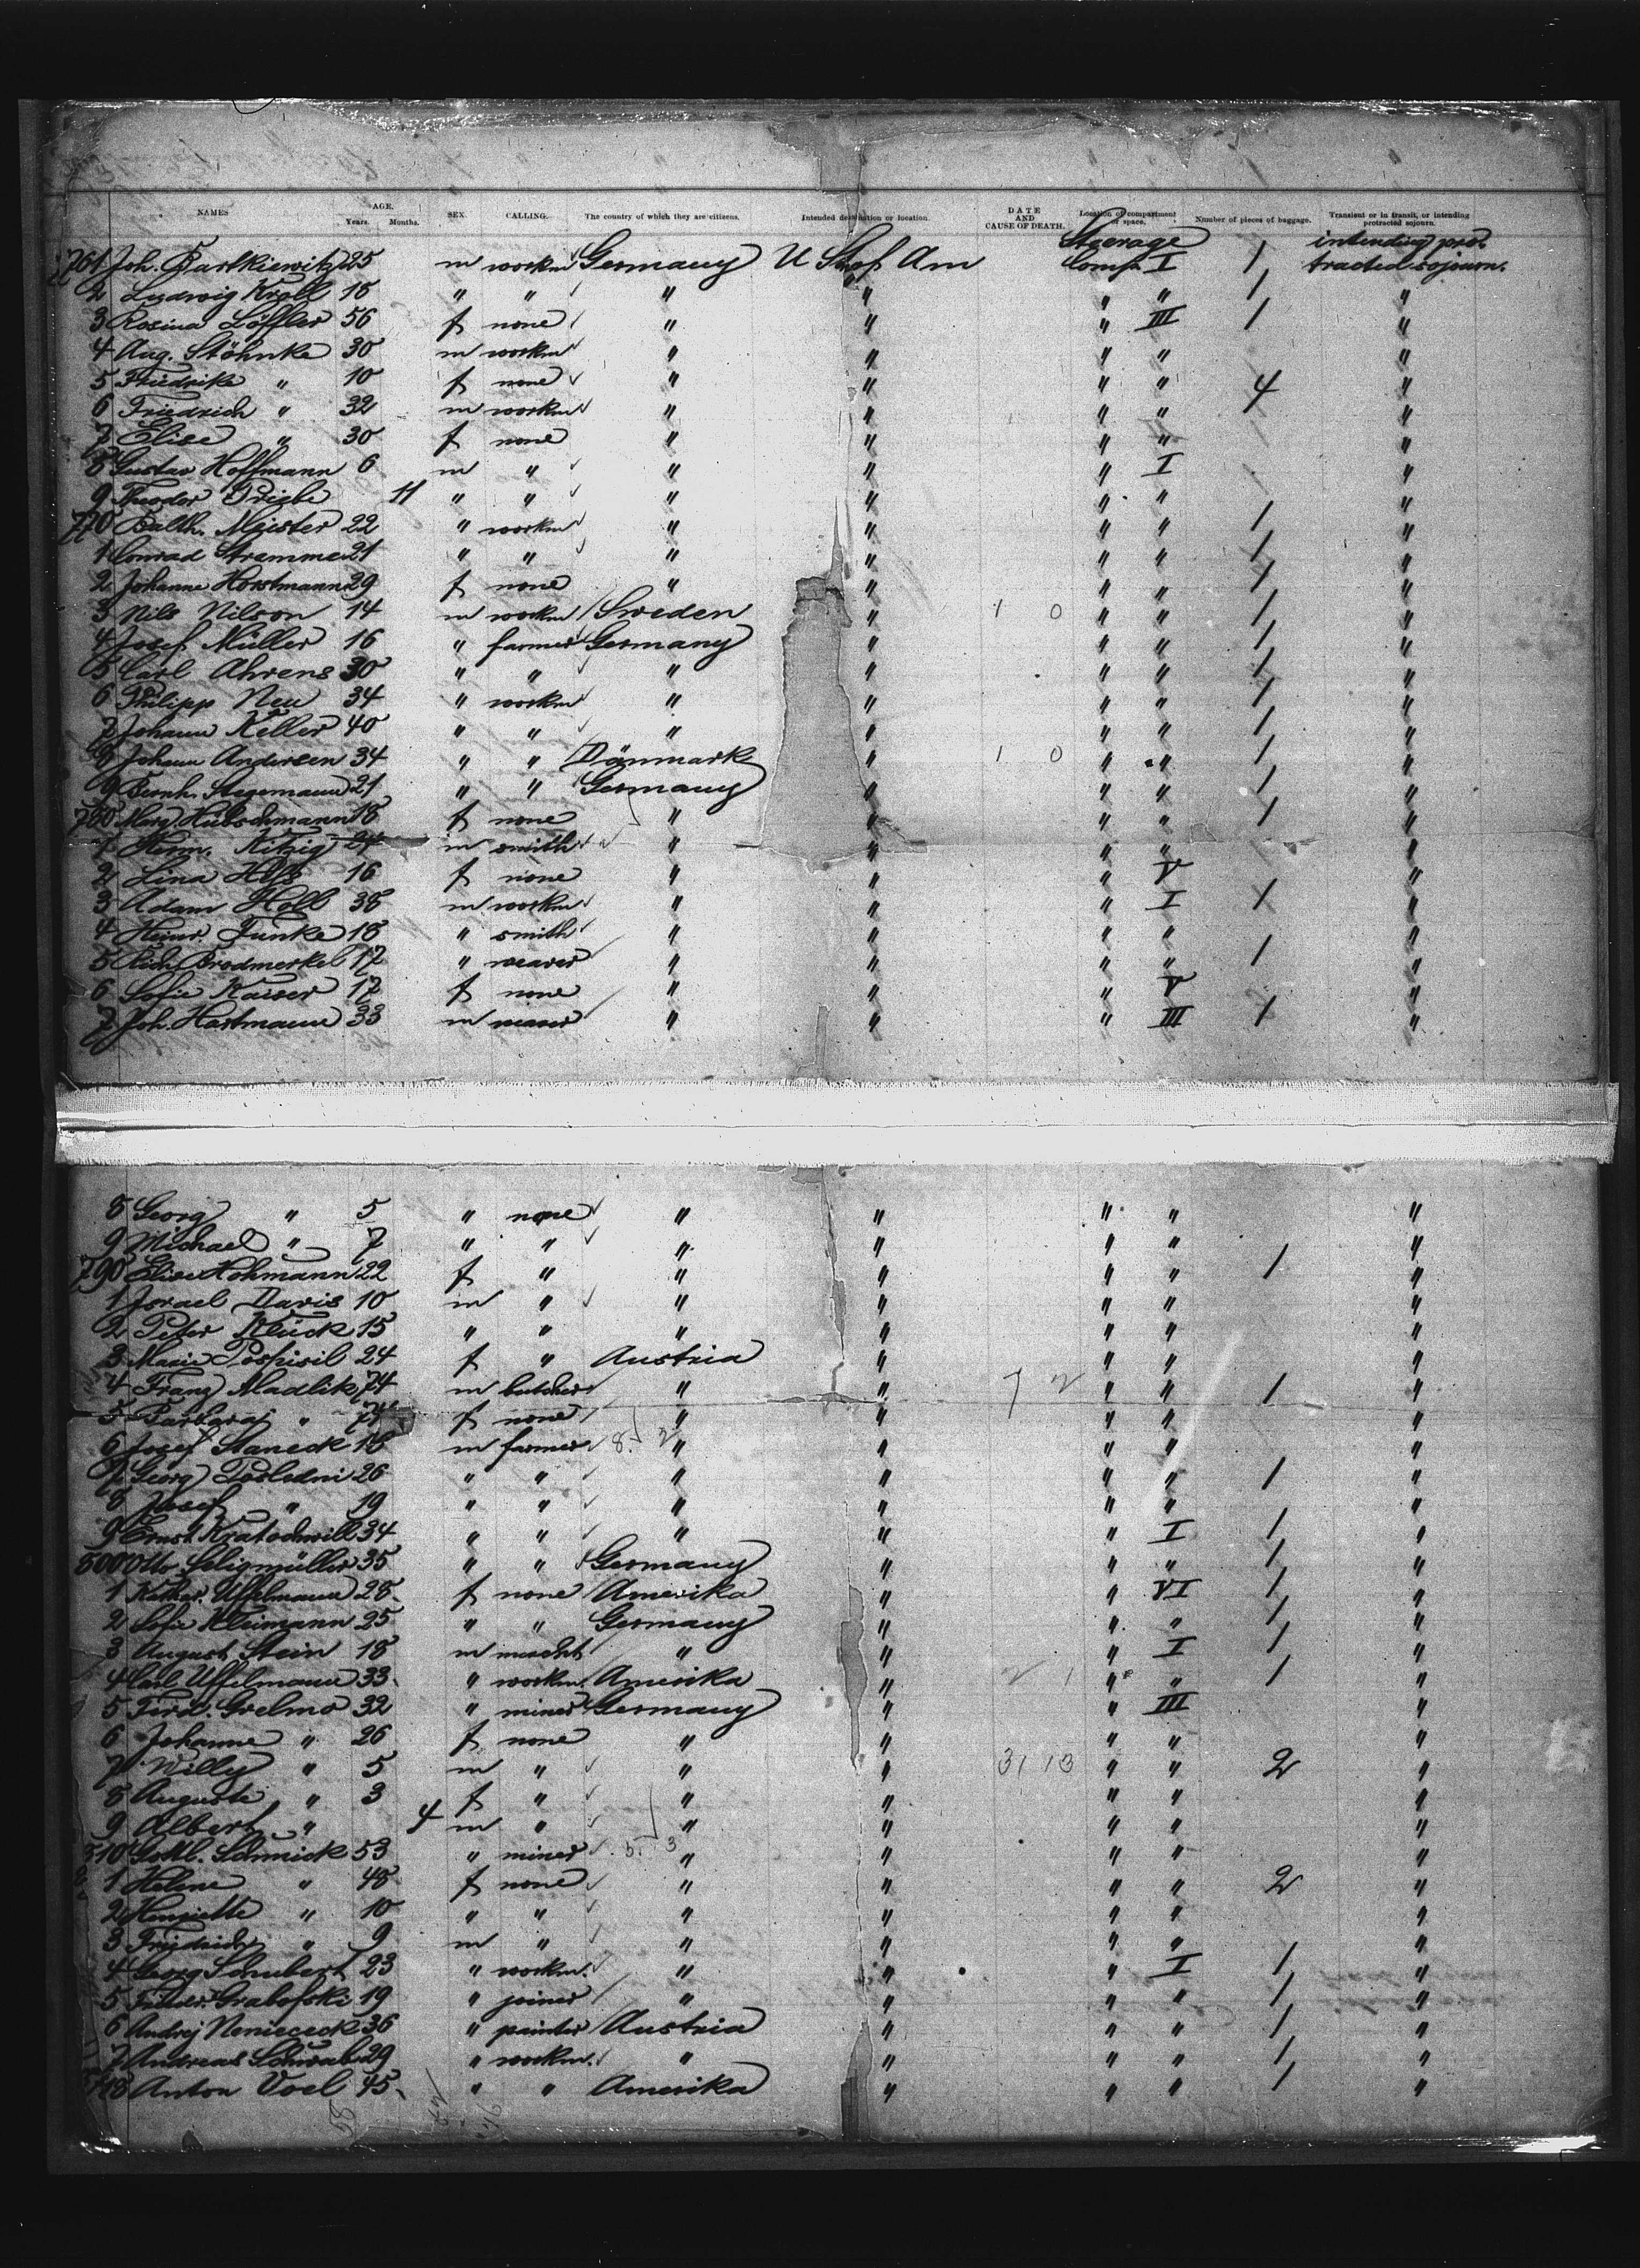 NAMES AGE. Years. Months. SEX. CALLING. The country of which they are citizens. Intended destination or location. DATE AND CAUSE OF DEATH. Location of compartment or space. Number of pieces of baggage. Transient or in transit, or intending protracted sojourn.
761 Joh. Bartkiewitz 25 m workm Germany U St of Am Steerage Comp. I 1 intending protracted sojourn.
2 Ludwig Kroll 18 " " " " " " 1 "
3 Rosina Löffler 56 f none " " " III 1 "
4 Aug. Stöhnke 30 m workm " " " " "
5 Friedrike " 10 f none " " " " 4 "
6 Friedrich " 32 m workm " " " " "
7 Elise " 30 f none " " " " "
8 Gustav Hoffmann 6 m " " " " I "
9 Theodor Priebe 11 " " " " " " "
770 Balth. Meister 22 " workm " " " " 1 "
1 Conrad Stramme 21 " " " " " " 1 "
2 Johanne Horstmann 29 f none " " " " 1 "
3 Nils Nilson 14 m workm Sweden " 1 0 " " 1 "
4 Josef Müller 16 " farmer Germany " " " 1 "
5 Carl Ahrens 30 " " " " " " 1 "
6 Philipp Neu 34 " workm " " " " 1 "
7 Johann Keller 40 " " " " " " 1 "
8 Johann Andersen 34 " " Dänmark " 1 0 " " 1 "
9 Bernh. Stegemann 21 " " Germany " " " 1 "
780 Marg. Hübschmann 18 f none " " " " 1 "
1 Herm. Kitzig 24 m smith " " " " "
2 Lina 16 f none " " " V "
3 Adam Holl 38 m workm " " " I 1 "
4 Heinr. Funke 18 " smith " " " " "
5 Rich. Brodmerkel 17 " weaver " " " " 1 "
6 Sofie Kaiser 17 f none " " " V "
7 Joh. Hartmann 33 m weaver " " " III 1 "
8 Georg " 5 " none " " " " "
9 Michael " 7 " " " " " " "
790 Elise Hohmann 22 f " " " " " 1 "
1 Israel Davis 10 m " " " " " "
2 Peter Klück 15 " " " " " " "
3 Marie Pospisil 24 f " Austria " " " "
4 Franz Madlik 74 m butcher " " 7 2 " " 1 "
5 Barbara " 74 f none " " " " "
6 Josef Staneck 18 m farmer 8. 2 " " " " "
7 Georg Posledni 26 " " " " " " 1 "
8 Josef " 19 " " " " " " "
9 Ernst Kratochwill 34 " " " " " I 1 "
8000 Otto Seligmüller 35 " " Germany " " " 1 "
1 Kathar. Uffelmann 28 f none Amerika " " VI 1 "
2 Sofie Kleimann 25 " " Germany " " " 1 "
3 August Stein 18 m mercht " " " I 1 "
4 Carl Uffelmann 33 " workm. Amerika " 2 1 " " 1 "
5 Ferd. Grelmo 32 " miner Germany " " III "
6 Johanne " 26 f none " " " " "
7 Willy " 5 m " " " 31 13 " " 2 "
8 Auguste " 3 f " " " " " "
9 Albert " 4 m " " " " " "
810 Gottl. Schmick 53 " miner 5. 3 " " " " "
1 Helene " 48 f none " " " " 2 "
2 Henriette " 10 " " " " " " "
3 Friedrich " 9 m " " " " " "
4 Georg Schubert 23 " workm. " " " I 1 "
5 Grabofski 19 " joiner " " " " 1 "
6 Andrej Nemececk 36 " painter Austria " " " 1 "
7 Andreas Schwab 29 " workm. " " " " 1 "
818 Anton Voel 45 " " Amerika " " " 1 "